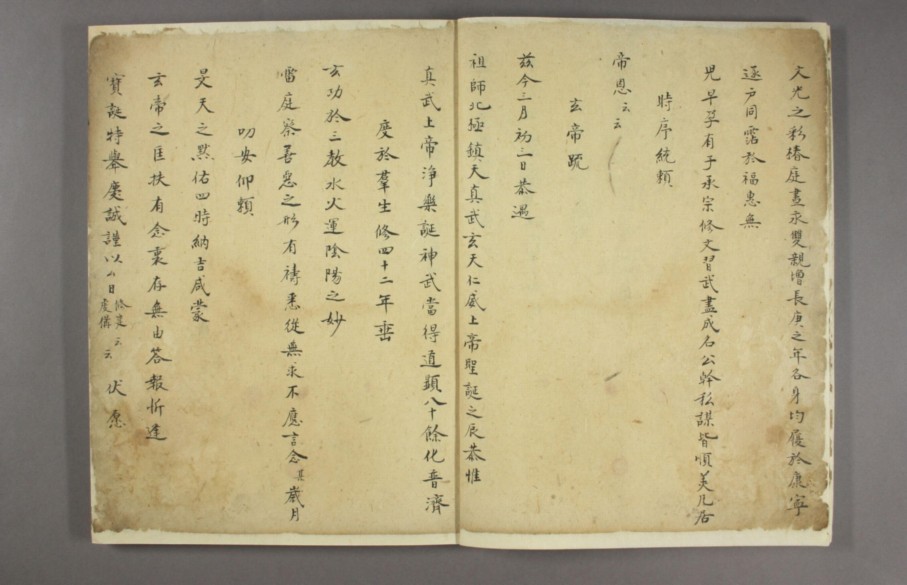 文光之彩椿庭晝永雙親增長庚之年各身均履於康寧
逐戶同霑於福惠無
兒早孕有子承宗修文習武盡成名公幹私謀皆順美凡居
時序統賴
帝恩云云
玄帝疏
茲今三月初三日恭遇
祖師北極鎮天真武玄天仁威上帝聖誕之辰恭惟
真武上帝淨樂誕神武當得道顯八十餘化普濟
度於羣生修四十二年
玄功於三教水火運陰陽之妙
雷庭察善惡之形有禱悉從無求不應言念某歲月
叨安仰賴
旻天之黙佑四時納吉咸蒙
玄帝之匡扶有念裏存無由答報忻逢
寶誕特舉慶誠謹以今日修建云慶備云伏愿